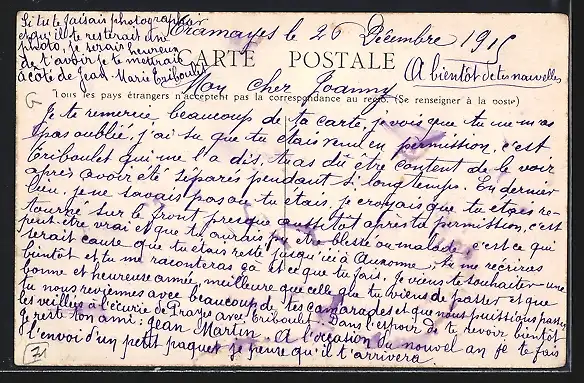 Si tu te faisais photographier
et qu'il te resterait un
photo, je serais heureux
de l'avoir je te mettrais
à côté de Jean Marie Triboulet
Tramayes le 26 Décembre 1915
CARTE POSTALE
A bientôt de tes nouvelles
Mon Cher Joanny
Tous les pays étrangers n'acceptent pas la correspondance au recto. (Se renseigner à la poste)
Je te remercie beaucoup de ta carte, je vois que tu ne m'as
pas oublié, j'ai su que tu étais venu en permission, c'est
Triboulet qui me l'a dis, tu as dû être content de le voir
après avoir été séparés pendant si longtemps. En dernier
lieu je ne savais pas où tu étais, je croyais que tu étais re-
tourné sur le front presque aussitôt après ta permission, c'est
peut-être vrai et que tu aurais pu être blessé ou malade, c'est ce qui
serait cause que tu étais resté jusqu'ici à Auxonne, tu me récriras
bientôt et tu me raconteras ça et ce que tu fais. Je viens te souhaiter une
bonne et heureuse année, meilleure que celle que tu viens de passer et que
tu nous reviennes avec beaucoup de tes camarades et que nous puissions passer
les veillées à l'écurie de Prayes avec Triboulet. Dans l'espoir de te revoir bientôt
je reste ton ami: Jean Martin. A l'occasion du nouvel an je te fais
l'envoi d'un petit paquet je pense qu'il t'arrivera.